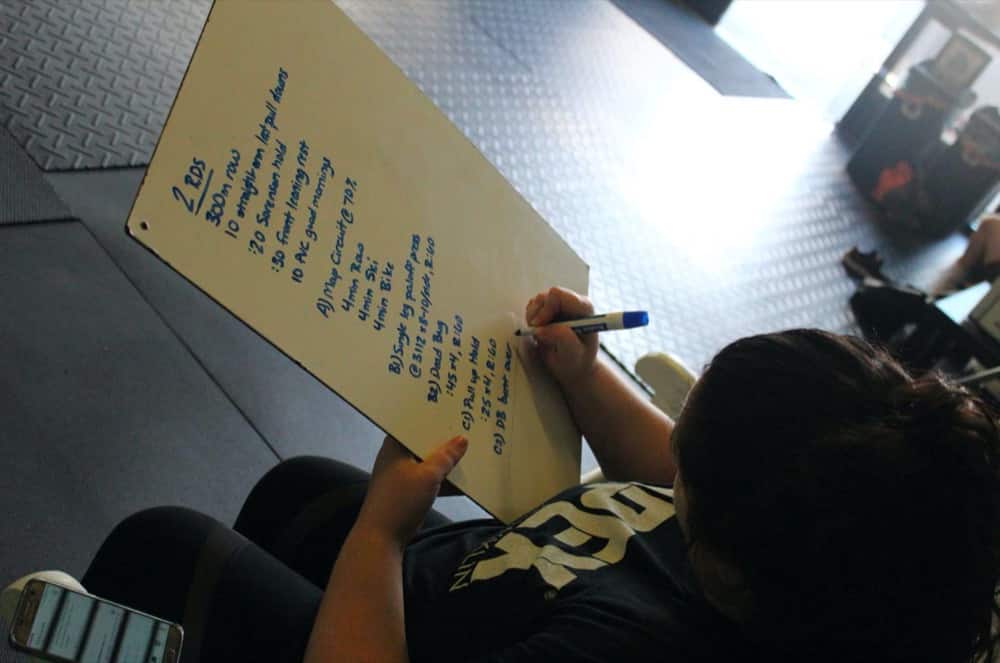 2 RDS
300m row
10 straight-arm lat pull downs
:20 Sorenson hold
:30 Front leaning rest
10 PVC good mornings
A) Map Circuit @ 70%
4min Row
4min Ski
4min Bike
B1) Single leg palloff press
@3112 x 8-10/side, R:60
B2) Dead Bug
:45 x4, R:60
C1) Pull up Hold
:25 x4, R:60
C2) DB bent over
KLIN